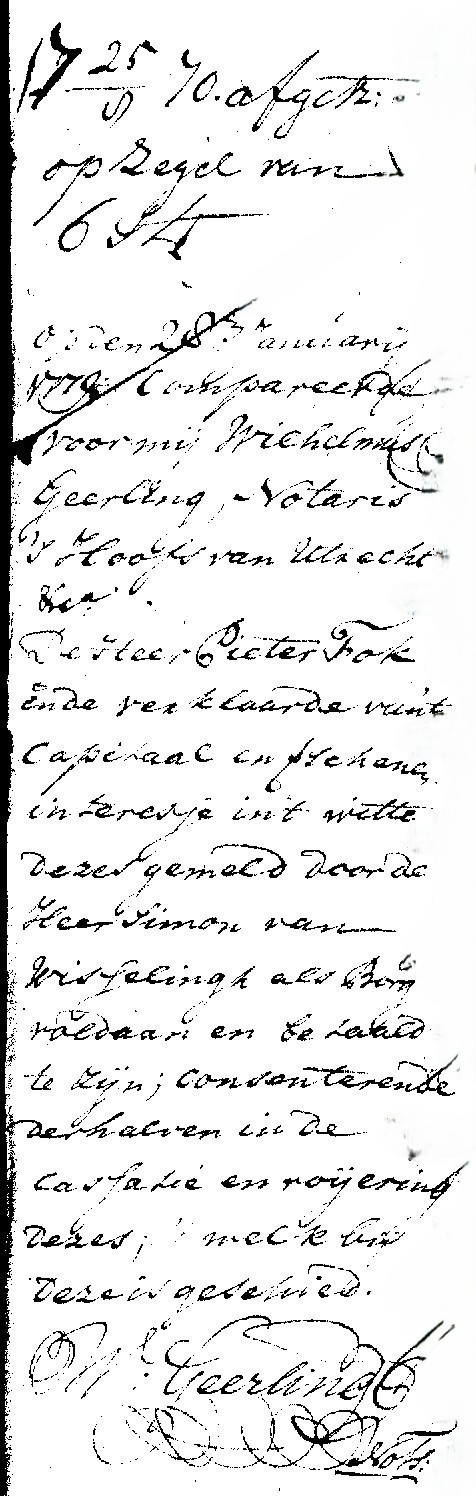 17 25/8 70. afgetr:
op Zegel van
6 St
Op den 28 January
1772 Compareerde
voor mij Wilhelmus
Geerling, Notaris
's Hoofs van Utrecht
&ca.
De Heer Pieter Fok
ende verklaarde van't
Capitaal en
interesse in't witte
dezes gemeld door de
Heer Simon van
Wisselingh als Borg
voldaan en betaald
te zijn; consenterende
derhalven in de
Cassatie en roijering
dezes; welk bij
deze is geschied.
Wm. Geerling
Nots: